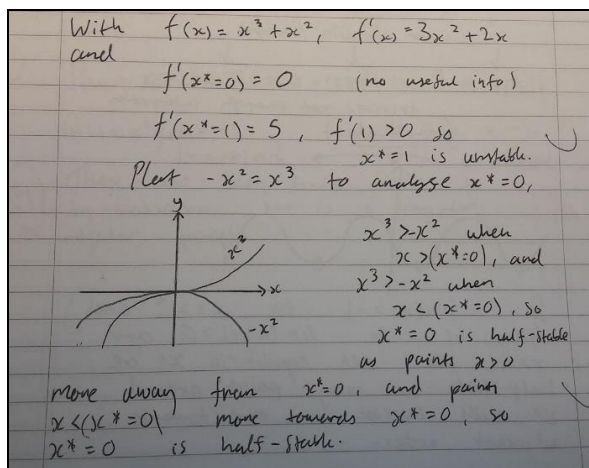 With f(x) = x³ + x², f'(x) = 3x² + 2x
and
f'(x*=0) = 0 (no useful info)
f'(x*=1) = 5, f'(1) > 0 so
x*=1 is unstable.
Plot -x² = x³ to analyse x*=0,
y
x³
x
-x²
x³ > -x² when
x > (x*=0), and
x³ > -x² when
x < (x*=0), so
x*=0 is half-stable
as points x>0
move away from x*=0, and points
x < (x*=0) move towards x*=0, so
x*=0 is half-stable.